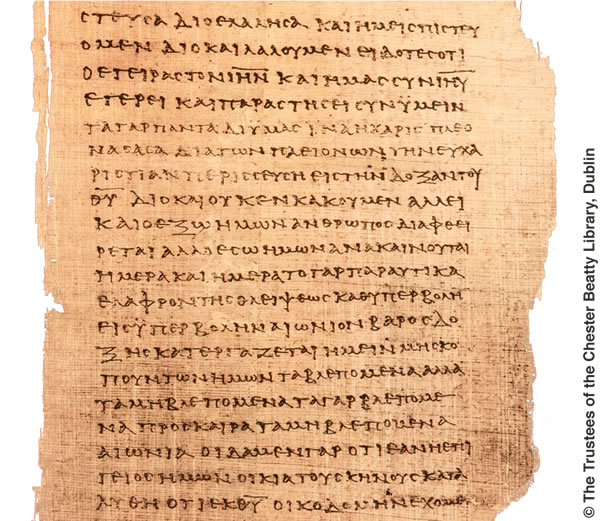 ΣΤΕΥΣΑ ΔΙΟ ΕΛΑΛΗΣΑ ΚΑΙ ΗΜΕΙΣ ΠΙΣΤΕΥ
ΟΜΕΝ ΔΙΟ ΚΑΙ ΛΑΛΟΥΜΕΝ ΕΙΔΟΤΕΣ ΟΤΙ
Ο ΕΓΕΙΡΑΣ ΤΟΝ Ι̅Η̅Ν̅ ΚΑΙ ΗΜΑΣ ΣΥΝ Ι̅Η̅Υ̅
ΕΓΕΡΕΙ ΚΑΙ ΠΑΡΑΣΤΗΣΕΙ ΣΥΝ ΫΜΕΙΝ
ΤΑ ΓΑΡ ΠΑΝΤΑ ΔΙ ΥΜΑΣ ΙΝΑ Η ΧΑΡΙΣ ΠΛΕΟ
ΝΑΣΑΣΑ ΔΙΑ ΤΩΝ ΠΛΕΙΟΝΩΝ ΤΗΝ ΕΥΧΑ
ΡΙΣΤΙΑΝ ΠΕΡΙΣΣΕΥΣΗ ΕΙΣ ΤΗΝ ΔΟΞΑΝ ΤΟΥ
Θ̅Υ̅ ΔΙΟ ΚΑΙ ΟΥΚ ΕΝΚΑΚΟΥΜΕΝ ΑΛΛ ΕΙ
ΚΑΙ Ο ΕΞΩ ΗΜΩΝ ΑΝΘΡΩΠΟΣ ΔΙΑΦΘΕΙ
ΡΕΤΑΙ ΑΛΛ Ο ΕΣΩ ΗΜΩΝ ΑΝΑΚΑΙΝΟΥΤΑΙ
ΗΜΕΡΑ ΚΑΙ ΗΜΕΡΑ ΤΟ ΓΑΡ ΠΑΡΑΥΤΙΚΑ
ΕΛΑΦΡΟΝ ΤΗΣ ΘΛΕΙΨΕΩΣ ΚΑΘ ΥΠΕΡΒΟΛΗ
ΕΙΣ ΥΠΕΡΒΟΛΗΝ ΑΙΩΝΙΟΝ ΒΑΡΟΣ ΔΟ
ΞΗΣ ΚΑΤΕΡΓΑΖΕΤΑΙ ΗΜΕΙΝ ΜΗ ΣΚΟ
ΠΟΥΝΤΩΝ ΗΜΩΝ ΤΑ ΒΛΕΠΟΜΕΝΑ ΑΛΛΑ
ΤΑ ΜΗ ΒΛΕΠΟΜΕΝΑ ΤΑ ΓΑΡ ΒΛΕΠΟΜΕ
ΝΑ ΠΡΟΣΚΑΙΡΑ ΤΑ ΜΗ ΒΛΕΠΟΜΕΝΑ
ΑΙΩΝΙΑ ΟΙΔΑΜΕΝ ΓΑΡ ΟΤΙ ΕΑΝ Η ΕΠΙ
ΓΕΙΟΣ ΗΜΩΝ ΟΙΚΙΑ ΤΟΥ ΣΚΗΝΟΥΣ ΚΑΤΑ
ΛΥΘΗ ΟΤΙ ΕΚ Θ̅Υ̅ ΟΙΚΟΔΟΜΗΝ ΕΧΟΜΕ
© The Trustees of the Chester Beatty Library, Dublin